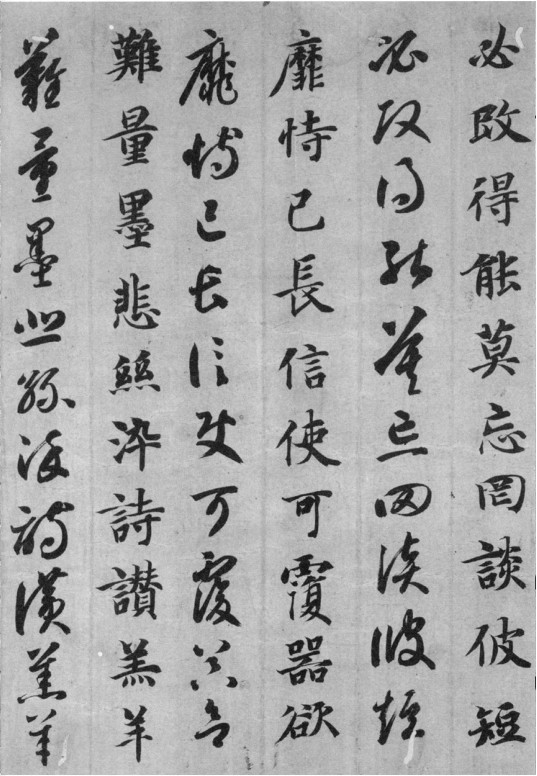 必改得能莫忘罔談彼短
必改得能莫忘罔談彼短
靡恃己長信使可覆器欲
靡恃己長信使可覆器欲
難量墨悲絲染詩讚羔羊
難量墨悲絲染詩讚羔羊